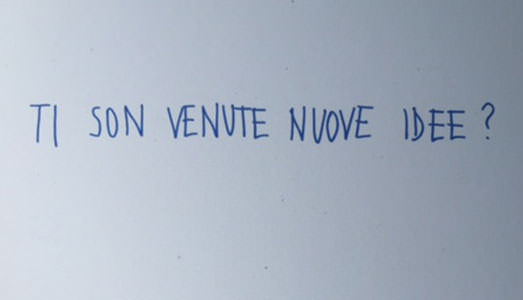 TI SON VENUTE NUOVE IDEE ?